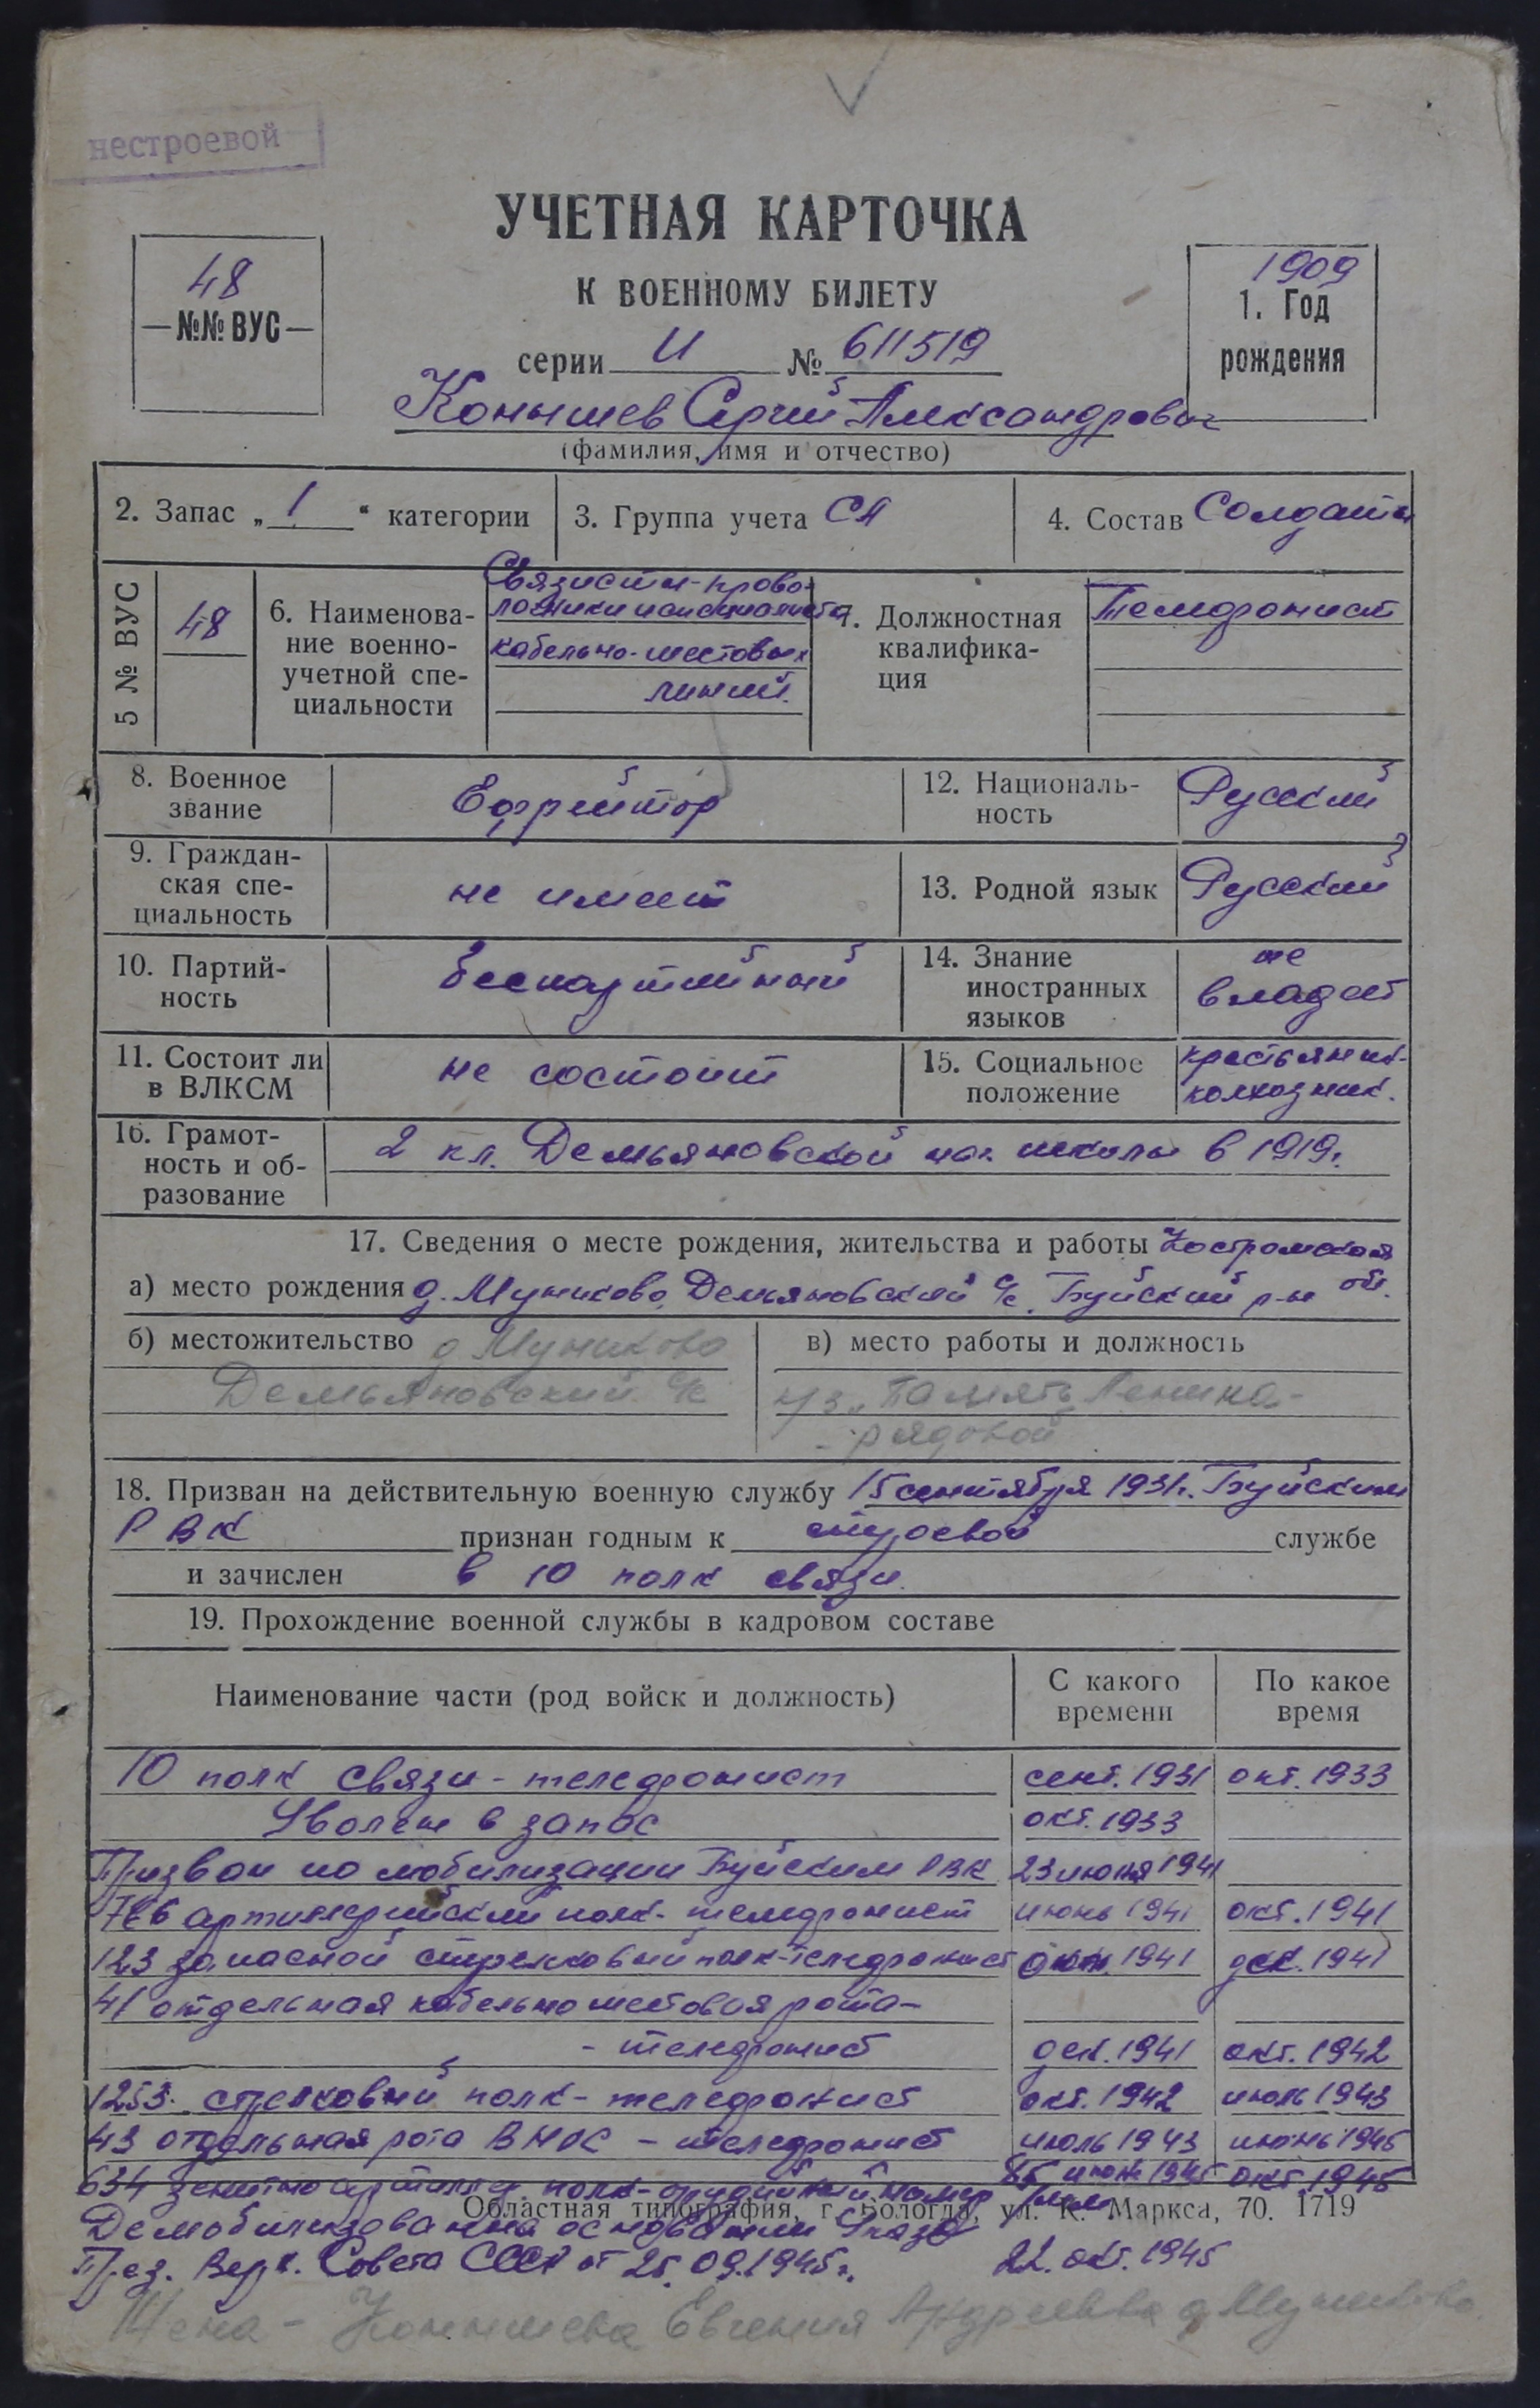 нестроевой
УЧЕТНАЯ КАРТОЧКА
К ВОЕННОМУ БИЛЕТУ
48
№№ ВУС
1909
1. Год
рождения
серии И № 611519
Конышев Сергей Александрович
(фамилия, имя и отчество)
2. Запас „ 1 “ категории
3. Группа учета СА
4. Состав Солдаты
5 № ВУС
48
6. Наименова-
ние военно-
учетной спе-
циальности
Связисты-прово-
лочники и специалисты
кабельно-шестовых
линий.
7. Должностная
квалифика-
ция
Телефонист
8. Военное
звание
Ефрейтор
12. Националь-
ность
Русский
9. Граждан-
ская спе-
циальность
не имеет
13. Родной язык
Русский
10. Партий-
ность
беспартийный
14. Знание
иностранных
языков
не
владеет
11. Состоит ли
в ВЛКСМ
не состоит
15. Социальное
положение
крестьянин-
колхозник.
16. Грамот-
ность и об-
разование
2 кл. Демьяновской нач. школы в 1919г.
17. Сведения о месте рождения, жительства и работы Костромская
а) место рождения д. Муниково, Демьяновский с/с. Буйский р-н обл.
б) местожительство д Муниково
Демьяновский с/с
в) место работы и должность
к/з „Память Ленина-
- рядовой
18. Призван на действительную военную службу 15 сентября 1931г. Буйским
РВК признан годным к строевой службе
и зачислен в 10 полк связи.
19. Прохождение военной службы в кадровом составе
Наименование части (род войск и должность)
С какого
времени
По какое
время
10 полк связи - телефонист сент. 1931 окт. 1933
Уволен в запас окт. 1933
Призван по мобилизации Буйским РВК 23 июня 1941
артиллерийский полк - телефонист июнь 1941 окт. 1941
123 запасной стрелковый полк-телефонист окт. 1941 дек. 1941
41 отдельная кабельно шестовая рота-
- телефонист дек. 1941 окт. 1942
1253 стрелковый полк - телефонист окт. 1942 июль 1943
43 отдельная рота ВНОС - телефонист июль 1943 июнь 1945
634 зенитно артилл. полк-орудийный номер июнь 1945 окт 1945
Областная типография, г. Вологда, ул. К. Маркса, 70. 1719
Демобилизован на основании Указа
През. Верх. Совета СССР от 25.09.1945г. 22. окт. 1945
Жена - Конышева Евгения Андреевна д Муниково